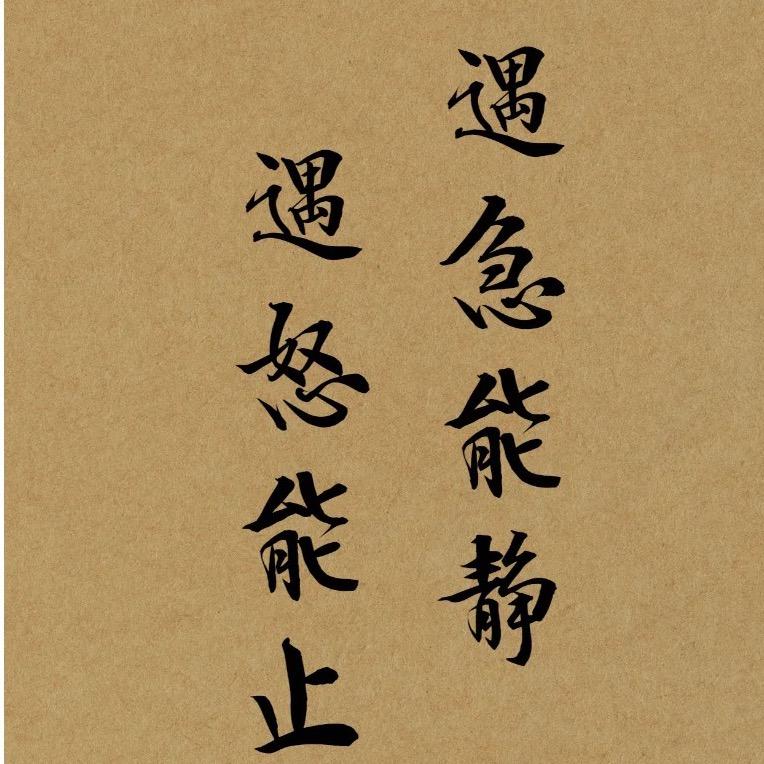 遇急能静
遇怒能止